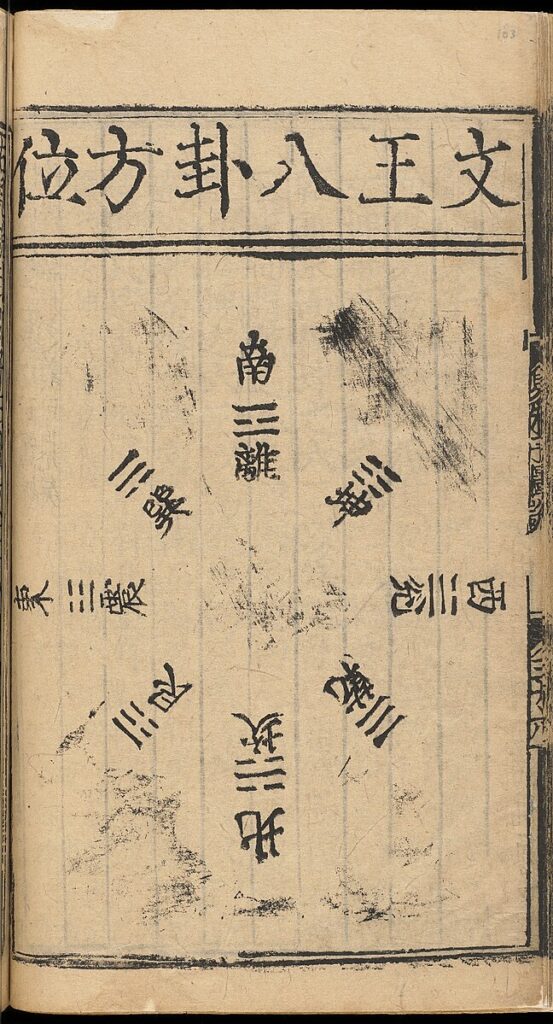 163
文王八卦方位
南
離
巽
坤
東 震
兌 西
艮
乾
坎
北